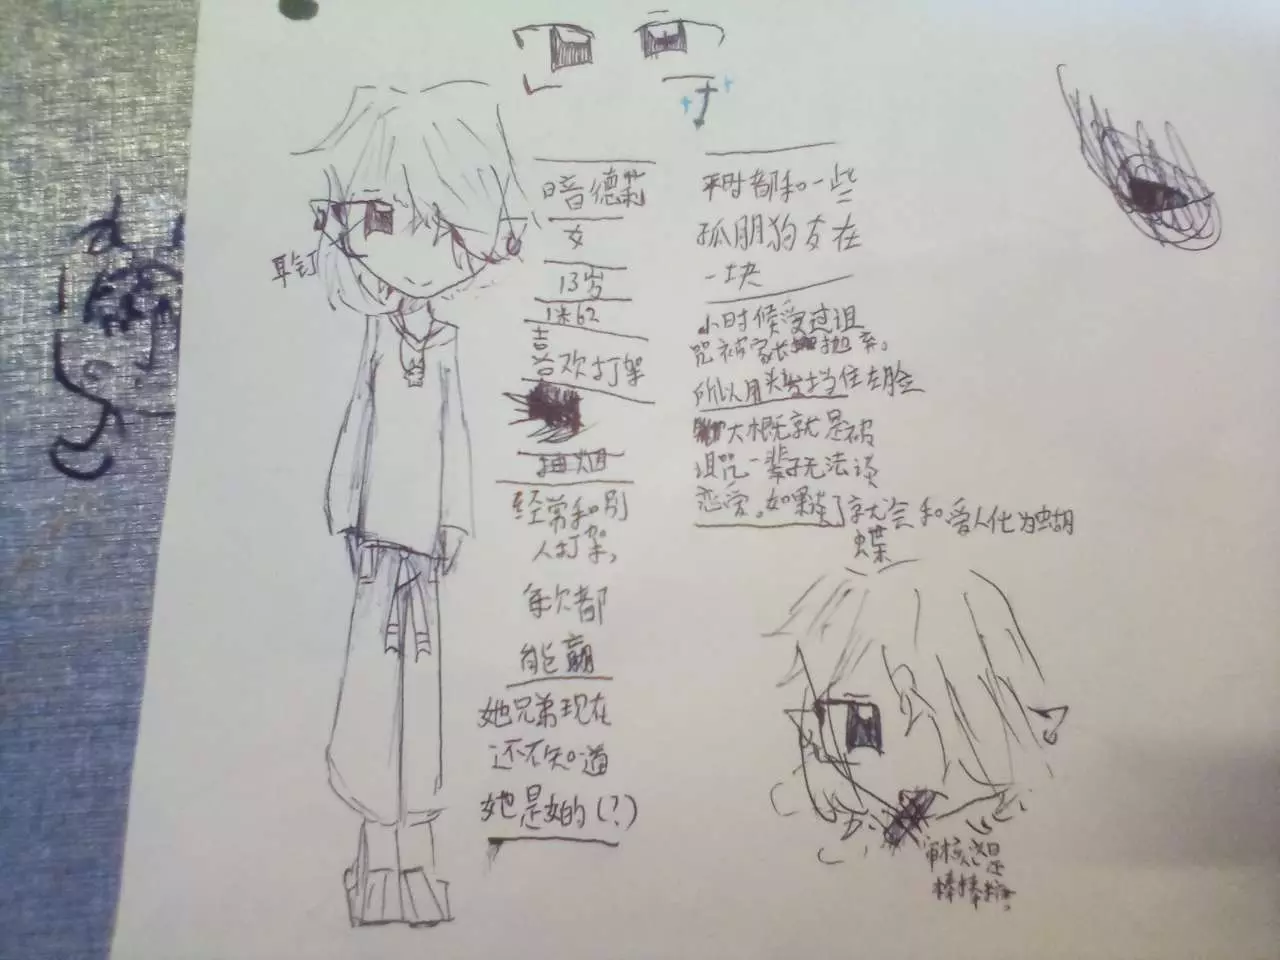 耳钉
暗德莉
女
13岁
1米62
喜欢打架
抽烟
经常和别
人打架，
每次都
能赢
她兄弟现在
还不知道
她是女的(？)
平时都和一些
孤朋狗友在
一块
小时候受过诅
咒被家长抛弃。
所以用头发挡住左脸
大概就是被
诅咒一辈子无法谈
恋爱。如果谈了就会和爱人化为蝴
蝶
审核这是
棒棒糖。